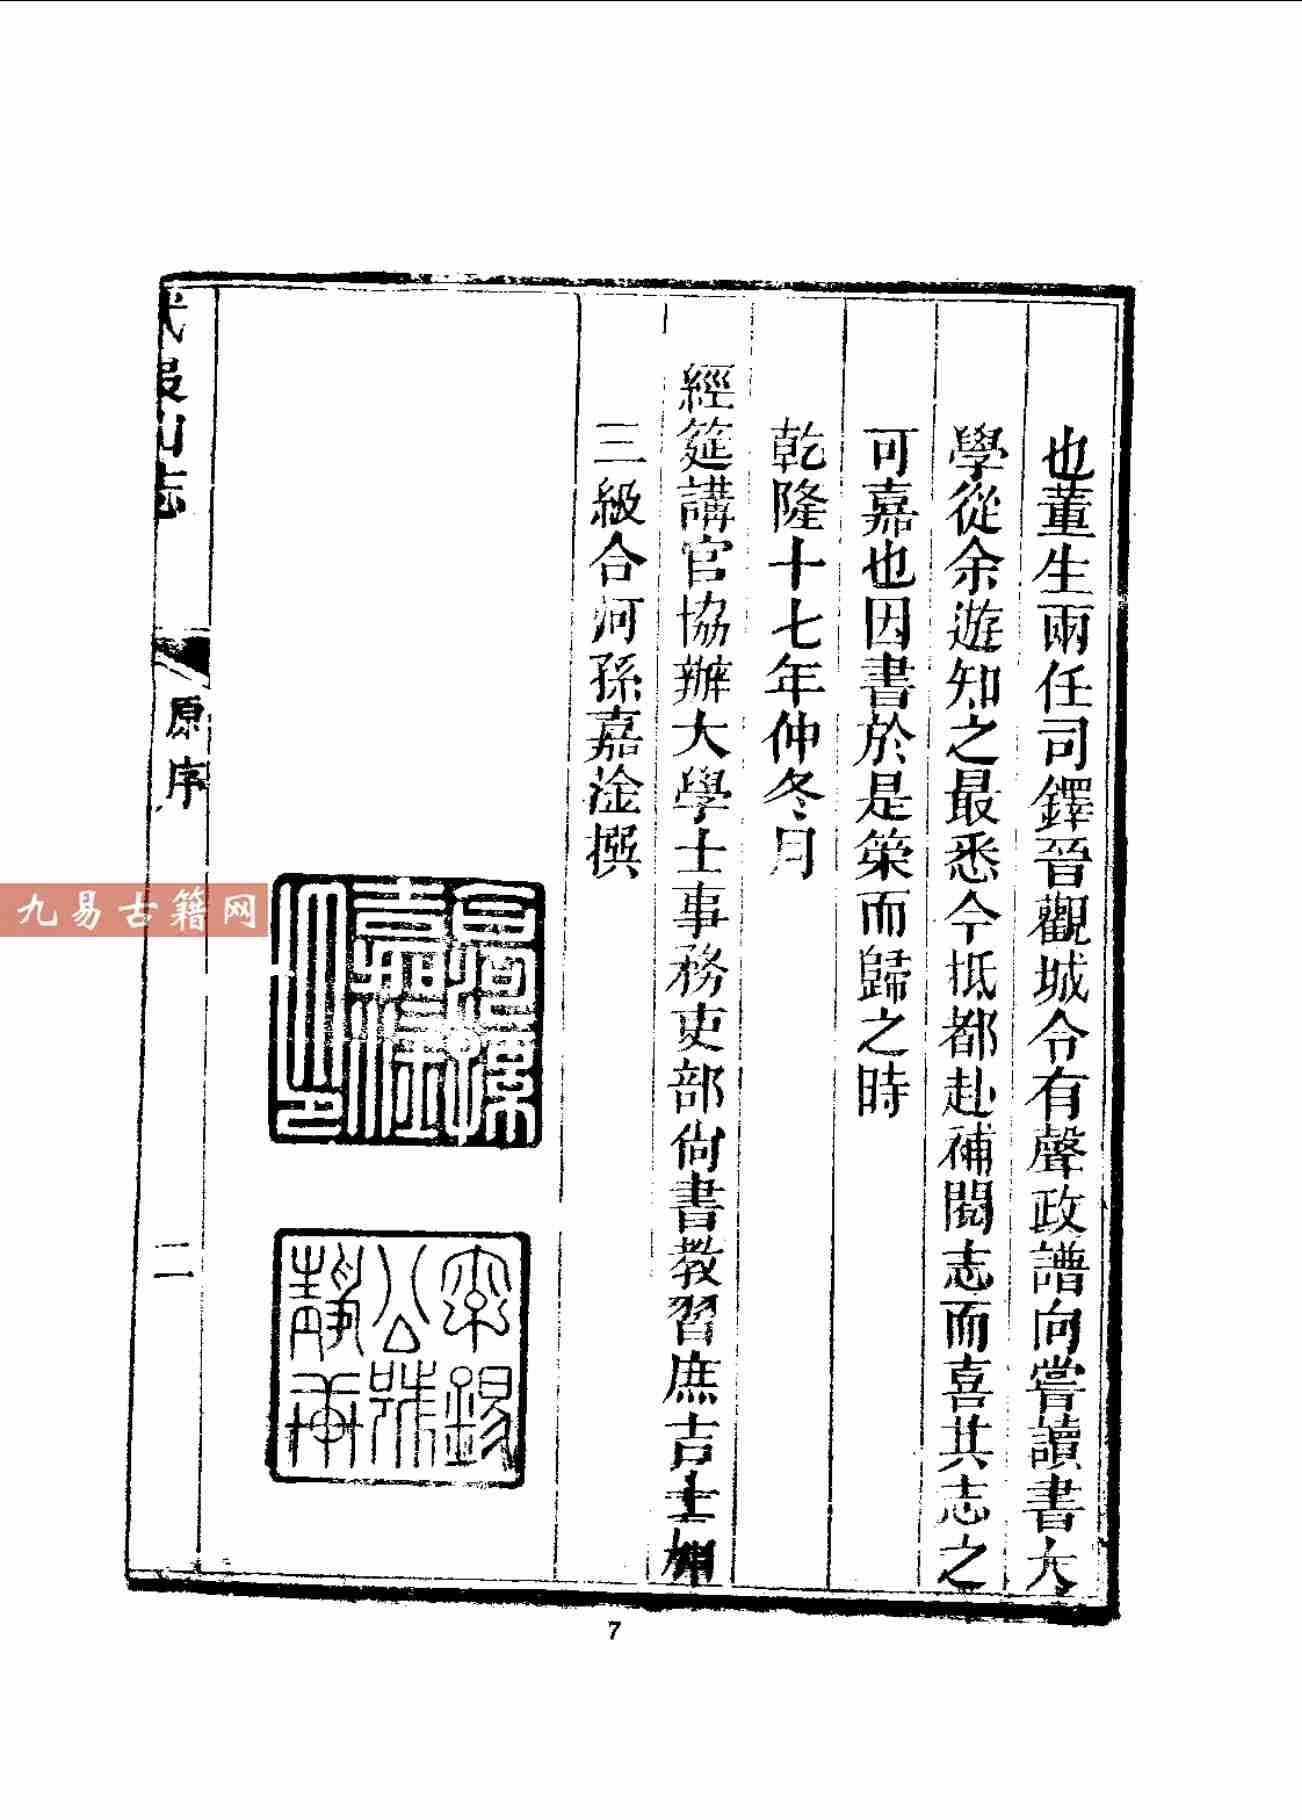 也董生兩任司鐸晉觀城令有聲政譜向嘗讀書大
學從余遊知之最悉今抵都赴補閱志而喜其志之
可嘉也因書於是策而歸之時
乾隆十七年仲冬月
經筵講官協辦大學士事務吏部尙書教習庶吉士加
三級合河孫嘉淦撰
武夷山志
原序
二
九易古籍网
7